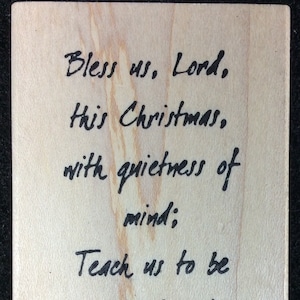 Bless us, Lord,
this Christmas,
with quietness of
mind;
Teach us to be